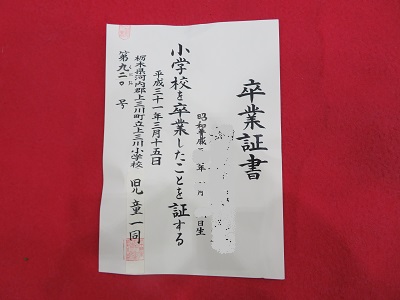 卒業証書
昭和 年 月 日生
小学校を卒業したことを証する
平成三十一年三月十五日
栃木県河内郡上三川町立上三川小学校 児童一同
第九二〇号